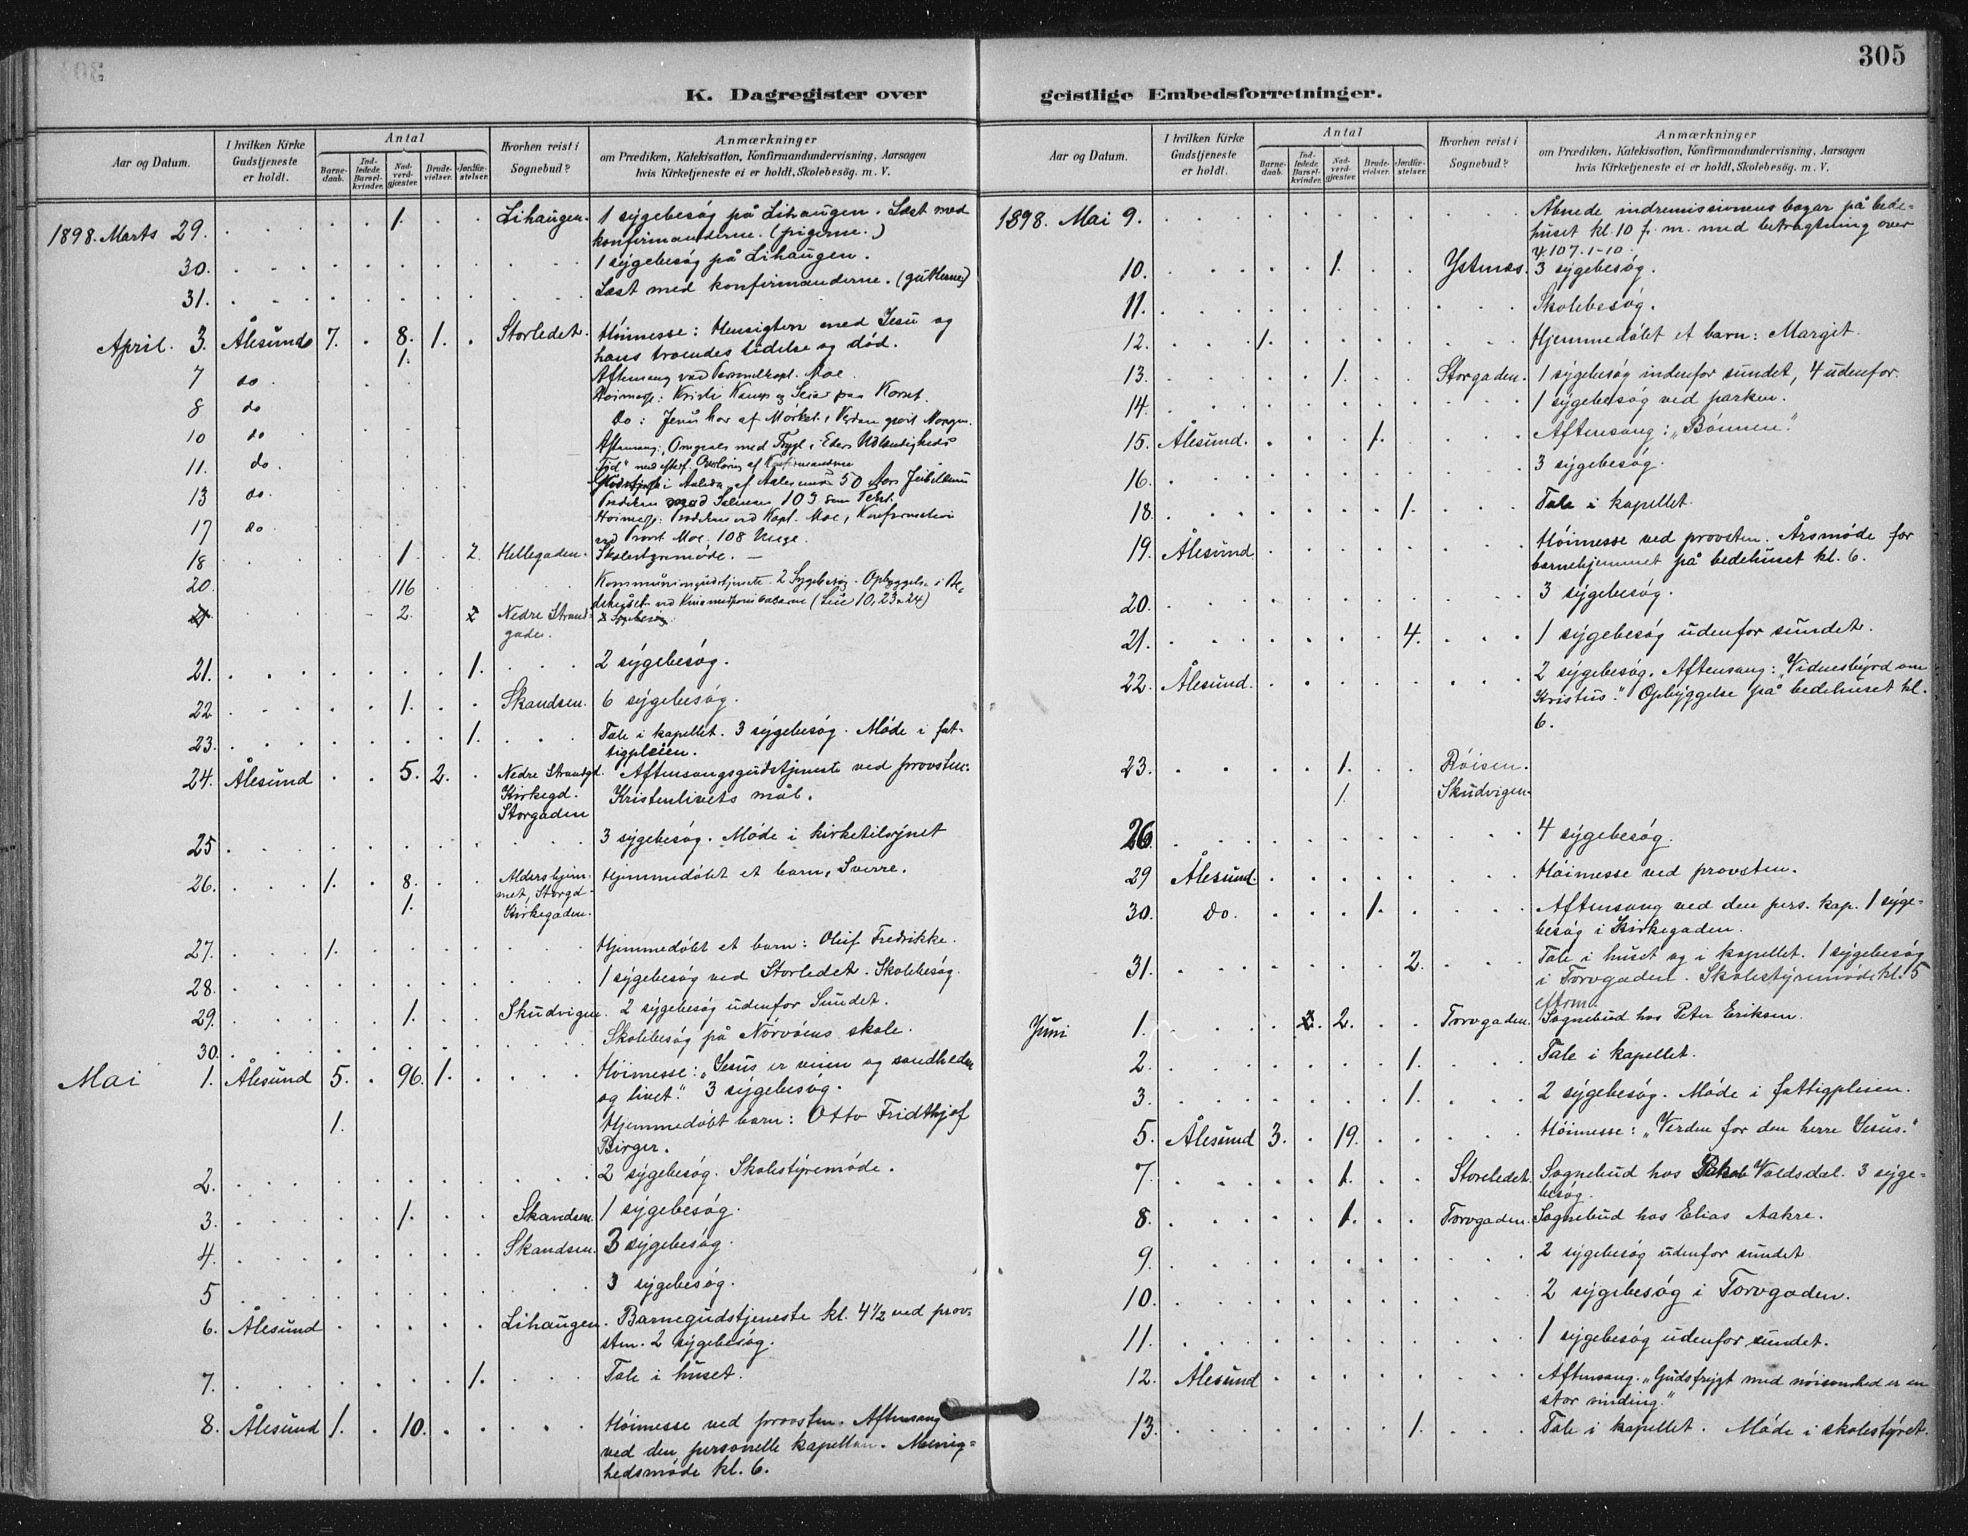 305
K. Dagregister over
geistlige Embedsforretninger.
Aar og Datum.
I hvilken Kirke Gudstjeneste er holdt.
Antal
Barne-daab.
Ind-ledede Barsel-kvinder.
Nad-verd-gjæster.
Brude-vielser.
Jordfæ-stelser.
Hvorhen reist i Sognebud?
Anmærkninger
om Prædiken, Katekisation, Konfirmandundervisning, Aarsagen
hvis Kirketjeneste ei er holdt, Skolebesøg. m. V.
1898. Marts 29. 1. Lihaugen. 1 sygebesøg på Lihaugen. Læst med
konfirmanderne. (pigerne.)
30. 1 sygebesøg på Lihaugen.
31. Læst med konfirmanderne. (gutterne)
April. 3. Ålesund 7. 8. 1. Storledet. Höimesse: Hensigten med Jesu og
1. hans troendes lidelse og død.
7 do Aftensang ved Personelkapl. Moe.
8 do Høimesse: Kristi Kamp og Seier paa Korset.
10 do Do: Jesu
11. do. Aftensang:
13 do. 50 Aars Jubilæum
Prædiken 103 som Text.
17 do Høimesse: Prædiken ved Kapl. Moe, Konfirmation
ved Provst Moe. 108 Unge.
18 1 2 Hellegaden. Skolestyremøde. —
20. 116 Kommuniongudstjeneste. 2 Sygebesøg. Opbyggelse i Be-
dehuset ved (Luc 10, 23-24)
2. 2 Nedre Strand-
gaden. 2 Sygebesøg.
21. 1. 2 sygebesøg.
22 1. Skandsen. 6 sygebesøg.
23. 1. Tale i kapellet. 3 sygebesøg. Møde i fat-
tigpleien.
24. Ålesund 5. 2. Nedre Strandgd. Aftensangsgudstjeneste ved provsten:
Kirkegd. Kristenlivets mål.
Storgaden
25 3 sygebesøg. Møde i kirketilsynet
26. 1. 8. Aldershjem- Hjemmedøbt et barn, Sverre.
met, Storgd.
1. Kirkegaden.
27. 1. Hjemmedøbt et barn: Oluf Fredrikke.
28. 1 sygebesøg ved Storledet. Skolebesøg.
29. 1. Skudvigen. 2 sygebesøg udenfor Sundet.
30. Skolebesøg på Nørvøens skole.
Mai 1. Ålesund 5. 96. 1. Höimesse: „Jesus er veien og sandheden
og livet." 3 sygebesøg.
1. Hjemmedøbt barn: Otto Fridthjof
Birger.
2. 2 sygebesøg. Skolestyremøde.
3. 1. Skandsen. 1 sygebesøg.
4. Skandsen. 3 sygebesøg.
5 3 sygebesøg.
6. Ålesund Lihaugen. Barnegudstjeneste kl. 4½ ved prov-
sten. 2 sygebesøg.
7. 1. Tale i huset.
8. Ålesund 1. 10. Höimesse ved provsten. Aftensang
ved den personelle kapellan. Menig-
hedsmøde kl. 6.
Aar og Datum.
I hvilken Kirke Gudstjeneste er holdt.
Antal
Barne-daab.
Ind-ledede Barsel-kvinder.
Nad-verd-gjæster.
Brude-vielser.
Jordfæ-stelser.
Hvorhen reist i Sognebud?
Anmærkninger
om Prædiken, Katekisation, Konfirmandundervisning, Aarsagen
hvis Kirketjeneste ei er holdt, Skolebesøg. m. V.
1898. Mai 9. Åbnede indremissionens bazar på bede-
huset kl. 10 f. m. med betragtning over
ψ 107. 1-10.
10. 1. Ystenæs. 3 sygebesøg.
11. Skolebesøg.
12. 1. Hjemmedøbt et barn: Margit.
13. 1. Storgaden. 1 sygebesøg indenfor sundet, 4 udenfor.
14. 1 sygebesøg ved parken.
15. Ålesund. 1. Aftensang: „Bønnen."
16. 3 sygebesøg.
18. 1. Tale i kapellet.
19. Ålesund Höimesse ved provsten. Årsmøde for
barnehjemmet på bedehuset kl. 6.
20. 3 sygebesøg.
21. 4. 1 sygebesøg udenfor sundet.
22. Ålesund. 2 sygebesøg. Aftensang: „Vidnesbyrd om
Kristus." Opbyggelse på bedehuset kl.
6.
23. 1. Röisen.
1. Skudvigen.
26 4 sygebesøg.
29 Ålesund. Höimesse ved provsten.
30. Do. 1. Aftensang ved den pers. kap. 1 syge-
besøg i Kirkegaden.
31. 2. Tale i huset og i kapellet. 1 sygebesøg
i Torvgaden. Skolestyremøde kl. 5
eftrm.
Juni 1. 2. Torvgaden. Sognebud hos Peter Eriksen.
2. 1. Tale i kapellet.
3. 1. 2 sygebesøg. Møde i fattigpleien.
5. Ålesund 3. 19. Höimesse: „Verden for den herre Jesus."
7. 1. Storeledet. Sognebud hos Jakob Voldsdal. 3 syge-
besøg.
8. 1. Torvgaden. Sognebud hos Elias Aakre.
9 2 sygebesøg udenfor sundet
10. 2 sygebesøg i Torvgaden.
11. 1 sygebesøg udenfor sundet.
12. Ålesund Aftensang. „Gudsfrygt med nöisomhed er en
stor vinding."
13. 1. Tale i kapellet. Møde i skolestyret.